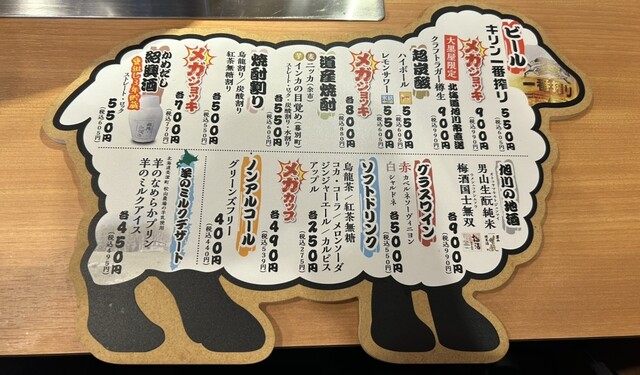 ビール
キリン一番搾り
550円
(税込605円)
メガジョッキ
900円
(税込990円)
大黒屋限定
北海道旭川市直送
クラフトラガー樽生
900円
(税込990円)
超炭酸
ハイボール
550円
(税込605円)
レモンサワー
550円
(税込605円)
メガジョッキ
各800円
(税込880円)
道産焼酎
ニッカ(余市)
インカの目覚め(幕別町)
ストレート・ロック・炭酸割り・水割り
各550円
(税込605円)
焼酎割り
烏龍割り/炭酸割り
紅茶無糖割り
各500円
(税込550円)
メガジョッキ
各700円
(税込770円)
かめだし
紹興酒
ストレート・ロック
550円
(税込605円)
旭川の地酒
男山生酛純米
梅酒国士無双
各900円
(税込990円)
グラスワイン
赤 カベルネソーヴィニヨン
白 シャルドネ
各500円
(税込550円)
ソフトドリンク
烏龍茶/紅茶無糖
コカ・コーラ/メロンソーダ
ジンジャーエール/カルピス
アップル
各250円
(税込275円)
メガカップ
各490円
(税込539円)
ノンアルコール
グリーンズフリー
400円
(税込440円)
羊のミルクデザート
羊のなめらかプリン
羊のミルクアイス
各450円
(税込495円)